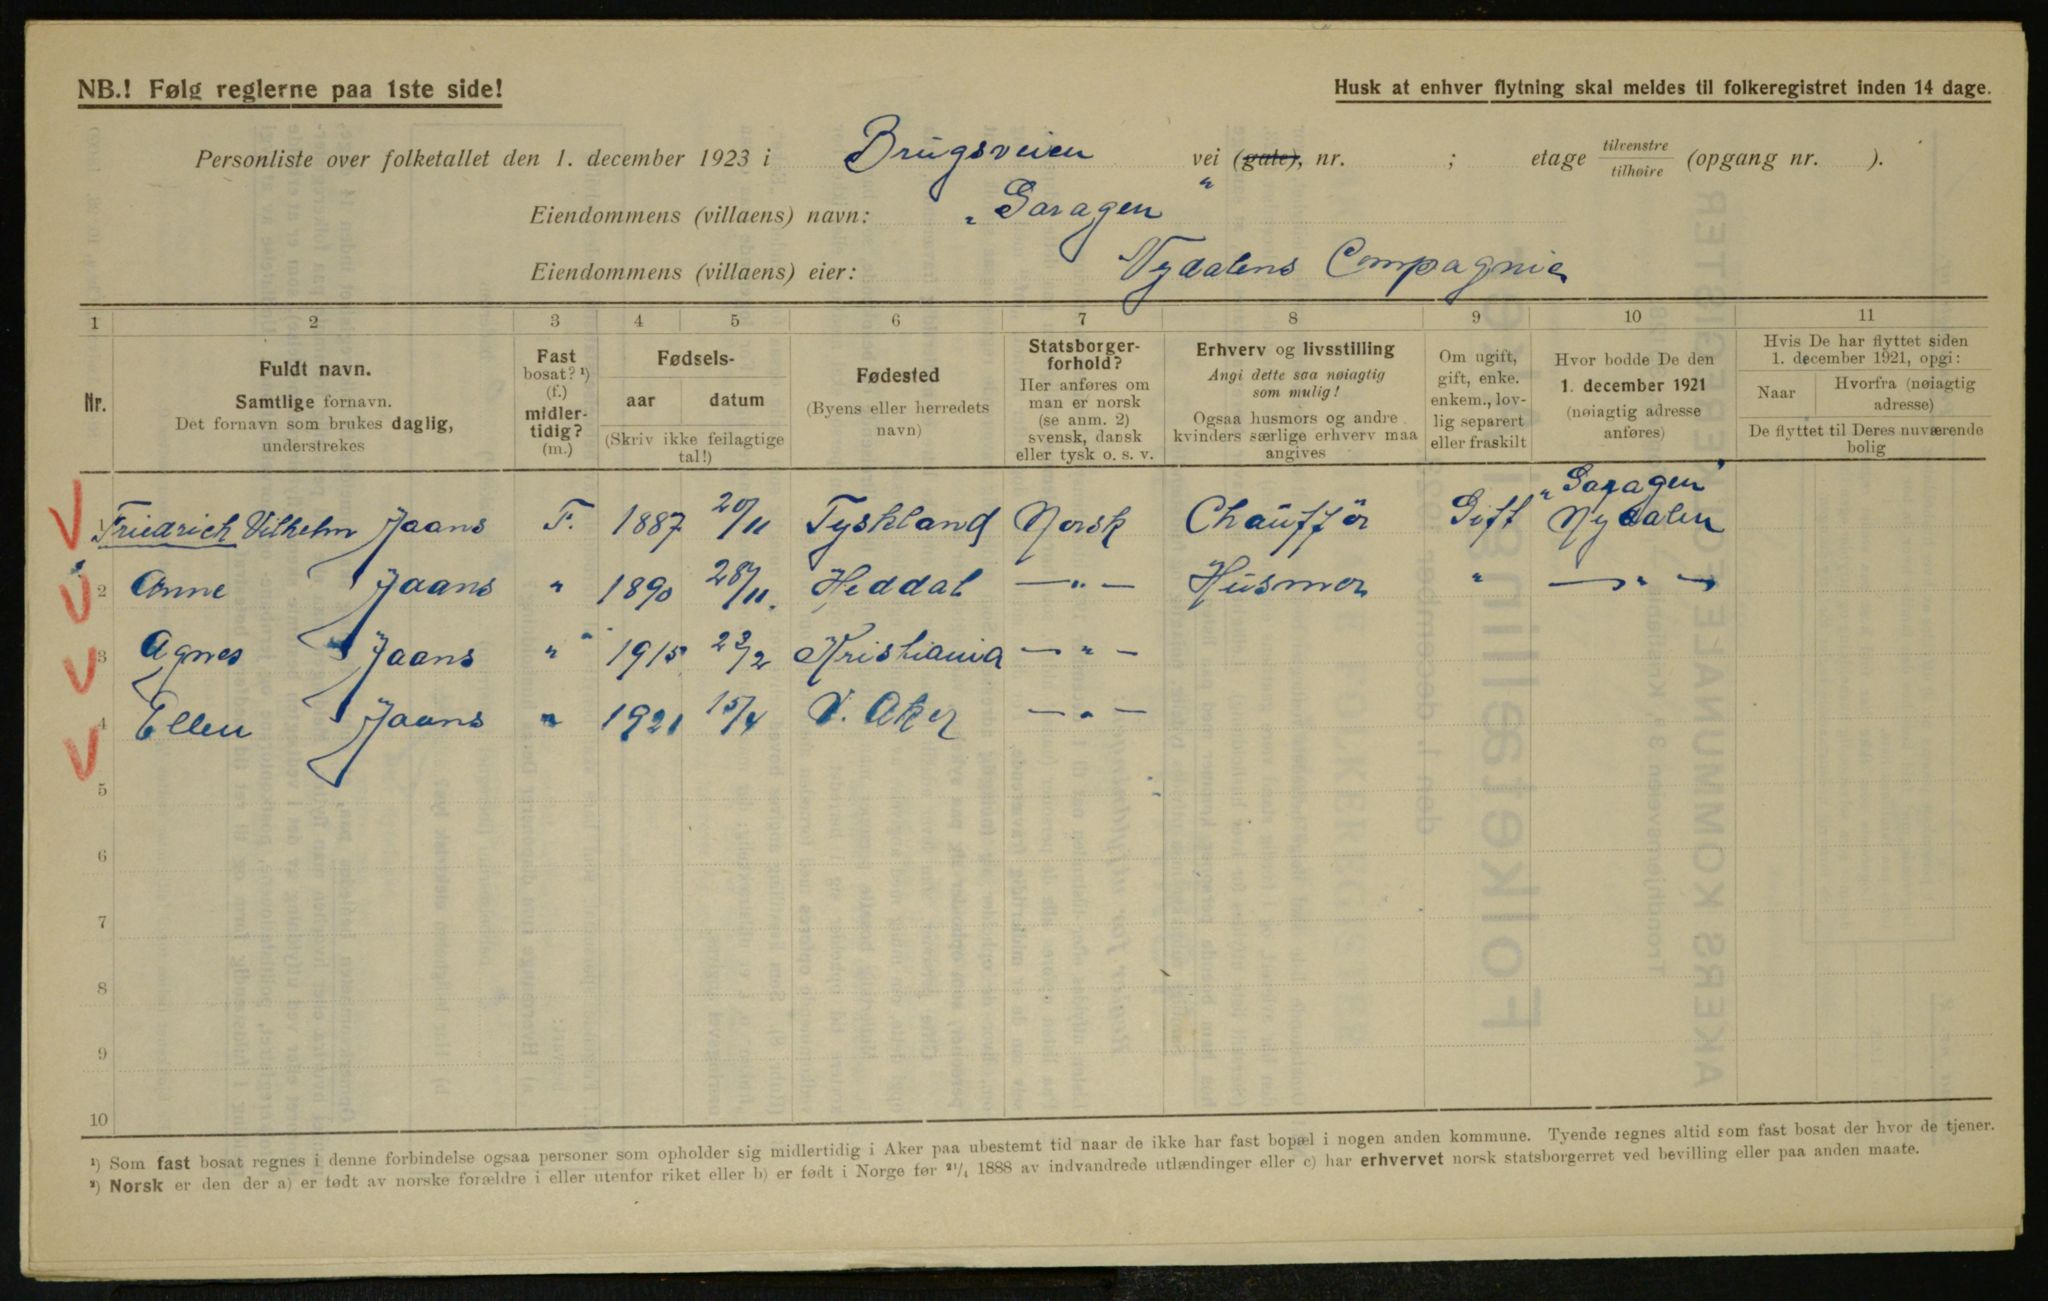 NB.! Følg reglerne paa 1ste side!
Husk at enhver flytning skal meldes til folkeregistret inden 14 dage.
Personliste over folketallet den 1. december 1923 i Brugsveien vei (gate), nr. ; etage tilvenstre tilhøire (opgang nr. ).
Eiendommens (villaens) navn: „Garagen"
Eiendommens (villaens) eier: Nydalens Compagnie
1 2 3 4 5 6 7 8 9 10 11
Nr.
Fuldt navn.
Samtlige fornavn.
Det fornavn som brukes daglig,
understrekes
Fast
bosat? ¹)
(f.)
midler-
tidig?
(m.)
Fødsels-
aar datum
(Skriv ikke feilagtige
tal!)
Fødested
(Byens eller herredets
navn)
Statsborger-
forhold?
Her anføres om
man er norsk
(se anm. 2)
svensk, dansk
eller tysk o. s. v.
Erhverv og livsstilling
Angi dette saa nøiagtig
som mulig!
Ogsaa husmors og andre
kvinders særlige erhverv maa
angives
Om ugift,
gift, enke.
enkem., lov-
lig separert
eller fraskilt
Hvor bodde De den
1. december 1921
(nøiagtig adresse
anføres)
Hvis De har flyttet siden
1. december 1921, opgi:
Naar Hvorfra (nøiagtig
adresse)
De flyttet til Deres nuværende
bolig
„Garagen"
1 Friedrich Vilhelm Jaans F. 1887 20/11 Tyskland Norsk Chauffør Gift Nydalen
2 Anne Jaans " 1890 28/11. Heddal — " — Husmor " — " —
3 Agnes Jaans " 1915 23/2 Kristiania — " —
4 Ellen Jaans " 1921 15/4 V. Aker — " —
5
6
7
8
9
10
¹) Som fast bosat regnes i denne forbindelse ogsaa personer som opholder sig midlertidig i Aker paa ubestemt tid naar de ikke har fast bopæl i nogen anden kommune. Tyende regnes altid som fast bosat der hvor de tjener.
²) Norsk er den der a) er født av norske forældre i eller utenfor riket eller b) er født i Norge før ²¹/₄ 1888 av indvandrede utlændinger eller c) har erhvervet norsk statsborgerret ved bevilling eller paa anden maate.